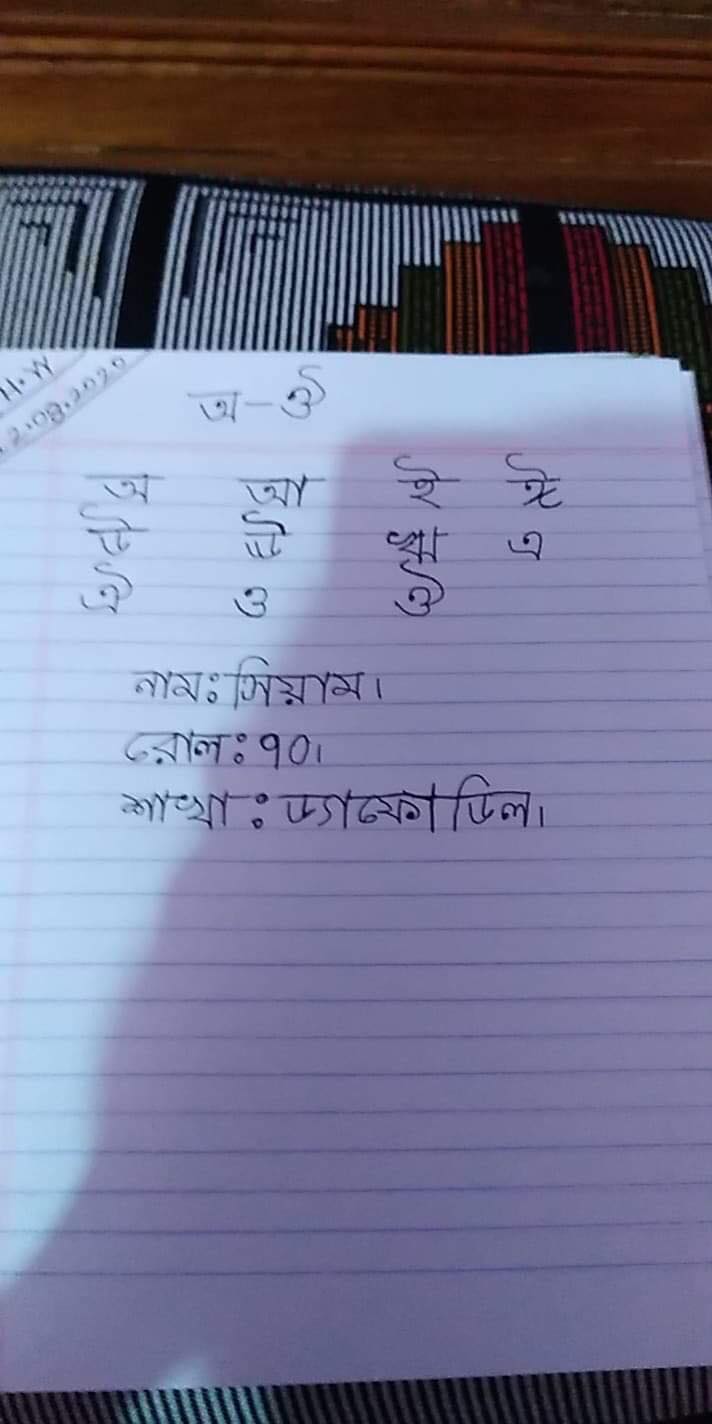 H.W
2.08.2020
অ-ঔ
অ আ ই ঈ
উ ঊ ঋ এ
ঐ ও ঔ
নামঃ সিয়াম।
রোলঃ ১০।
শাখাঃ ড্যাফোডিল।